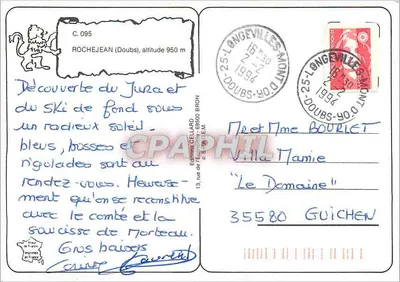 C. 095
ROCHEJEAN (Doubs), altitude 950 m
Découverte du Jura et
du ski de fond sous
un radieux soleil.
bleus, bosses et
rigolades sont au
rendez-vous. Heureuse-
ment qu'on se reconstitue
avec le comté et la
saucisse de Morteau.
Gros baisers
Laurent
Editions CELLARD
25-LONGEVILLES-MONT D'OR
16 H 30
2-2
1994
-DOUBS-
25-LONGEVILLES-MONT D'OR
16 H 30
2-2
1994
-DOUBS-
Mr et Mme BOURLET
Villa Mamie
"Le Domaine"
35580 GUICHEN
CPAPHIL